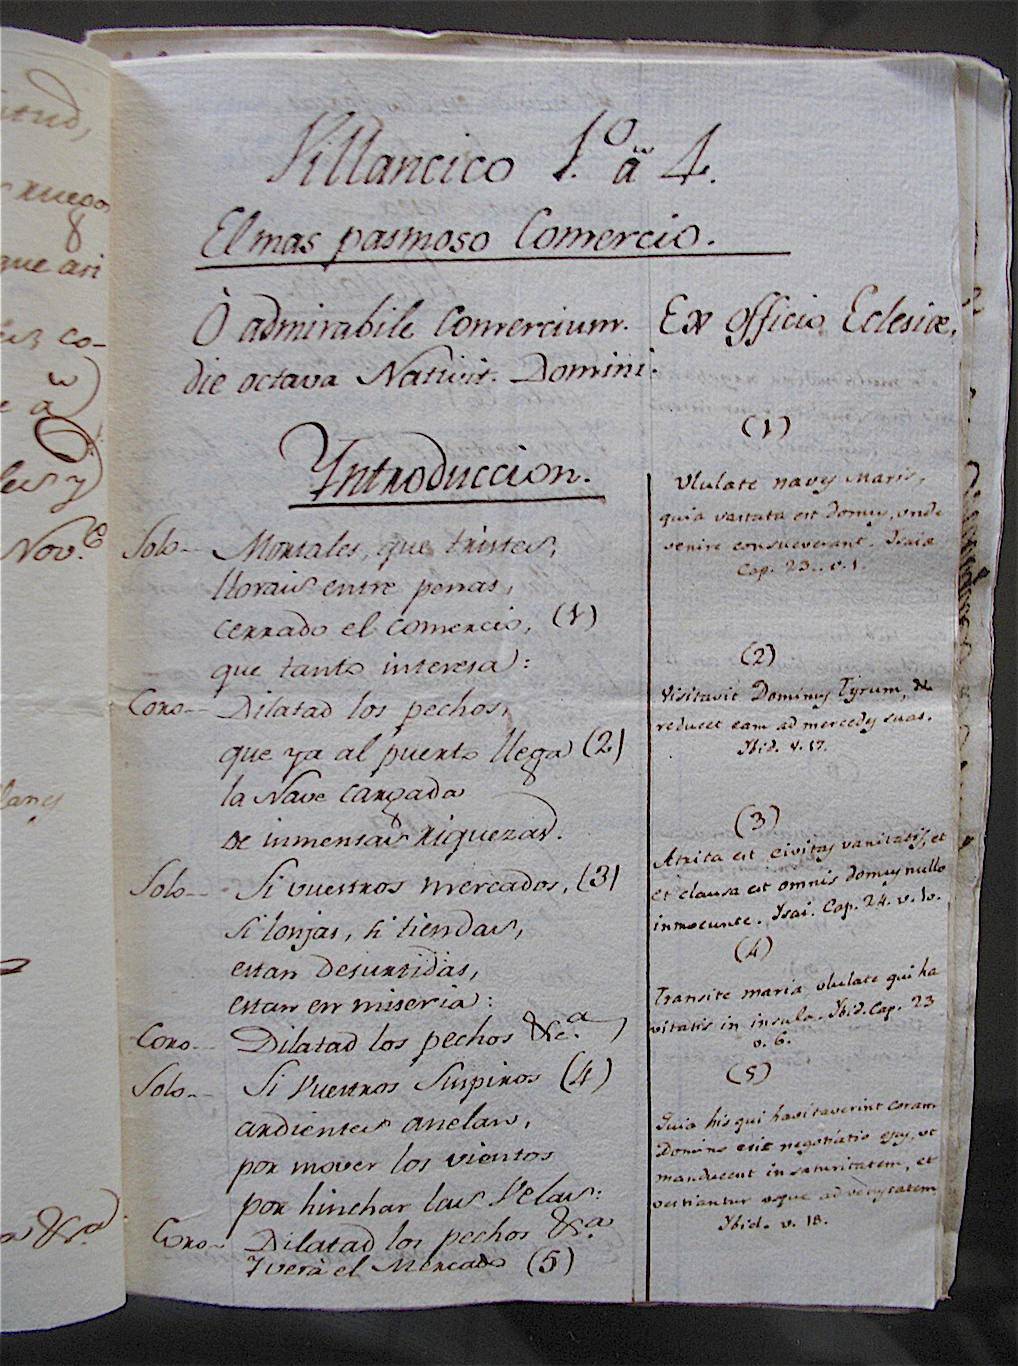 Villancico 1.º â 4.
El mas pasmoso Comercio.
O admirabile Comercium. Ex officio Eclesiæ,
die octava Nativit. Domini.
Yntroduccion.
Solo- Mortales, que tristes,
llorais entre penas,
cerrado el comercio, (1)
que tanto interesa:
Coro- Dilatad los pechos,
que ya al puerto llega (2)
la Nave cargada
de inmensas riquezas.
Solo- Si vuestros mercados, (3)
si lonjas, si tiendas,
estan desurtidas,
estan en miseria:
Coro- Dilatad los pechos &c.ª
Solo- Si vuestros suspiros (4)
ardientes anelan,
por mover los vientos
por hinchar las velas:
Coro- Dilatad los pechos &.ª
Y verà el Mercado (5)
(1)
Ululate naves Maris,
quia vastata est domus, unde
venire consueverant. Isaiæ
Cap. 23. v. 1.
(2)
Visitavit Dominus Tyrum, &
reducet eam ad mercedes suas.
Ibid. v. 17.
(3)
Atrita est civitas vanitatis, et
et clausa est omnis domus nullo
introeunte. Isai. Cap. 24. v. 10.
(4)
Transite maria ululate qui ha
vitatis in insula. Ibid. Cap. 23
v. 6.
(5)
Quia his qui havitaverint coram
Domino erit negotiatio ejus, ut
manducent in saturitatem, et
vestiantur usque ad vetustatem
Ibid. v. 18.
ruegos
que asi
co-
Nov.e